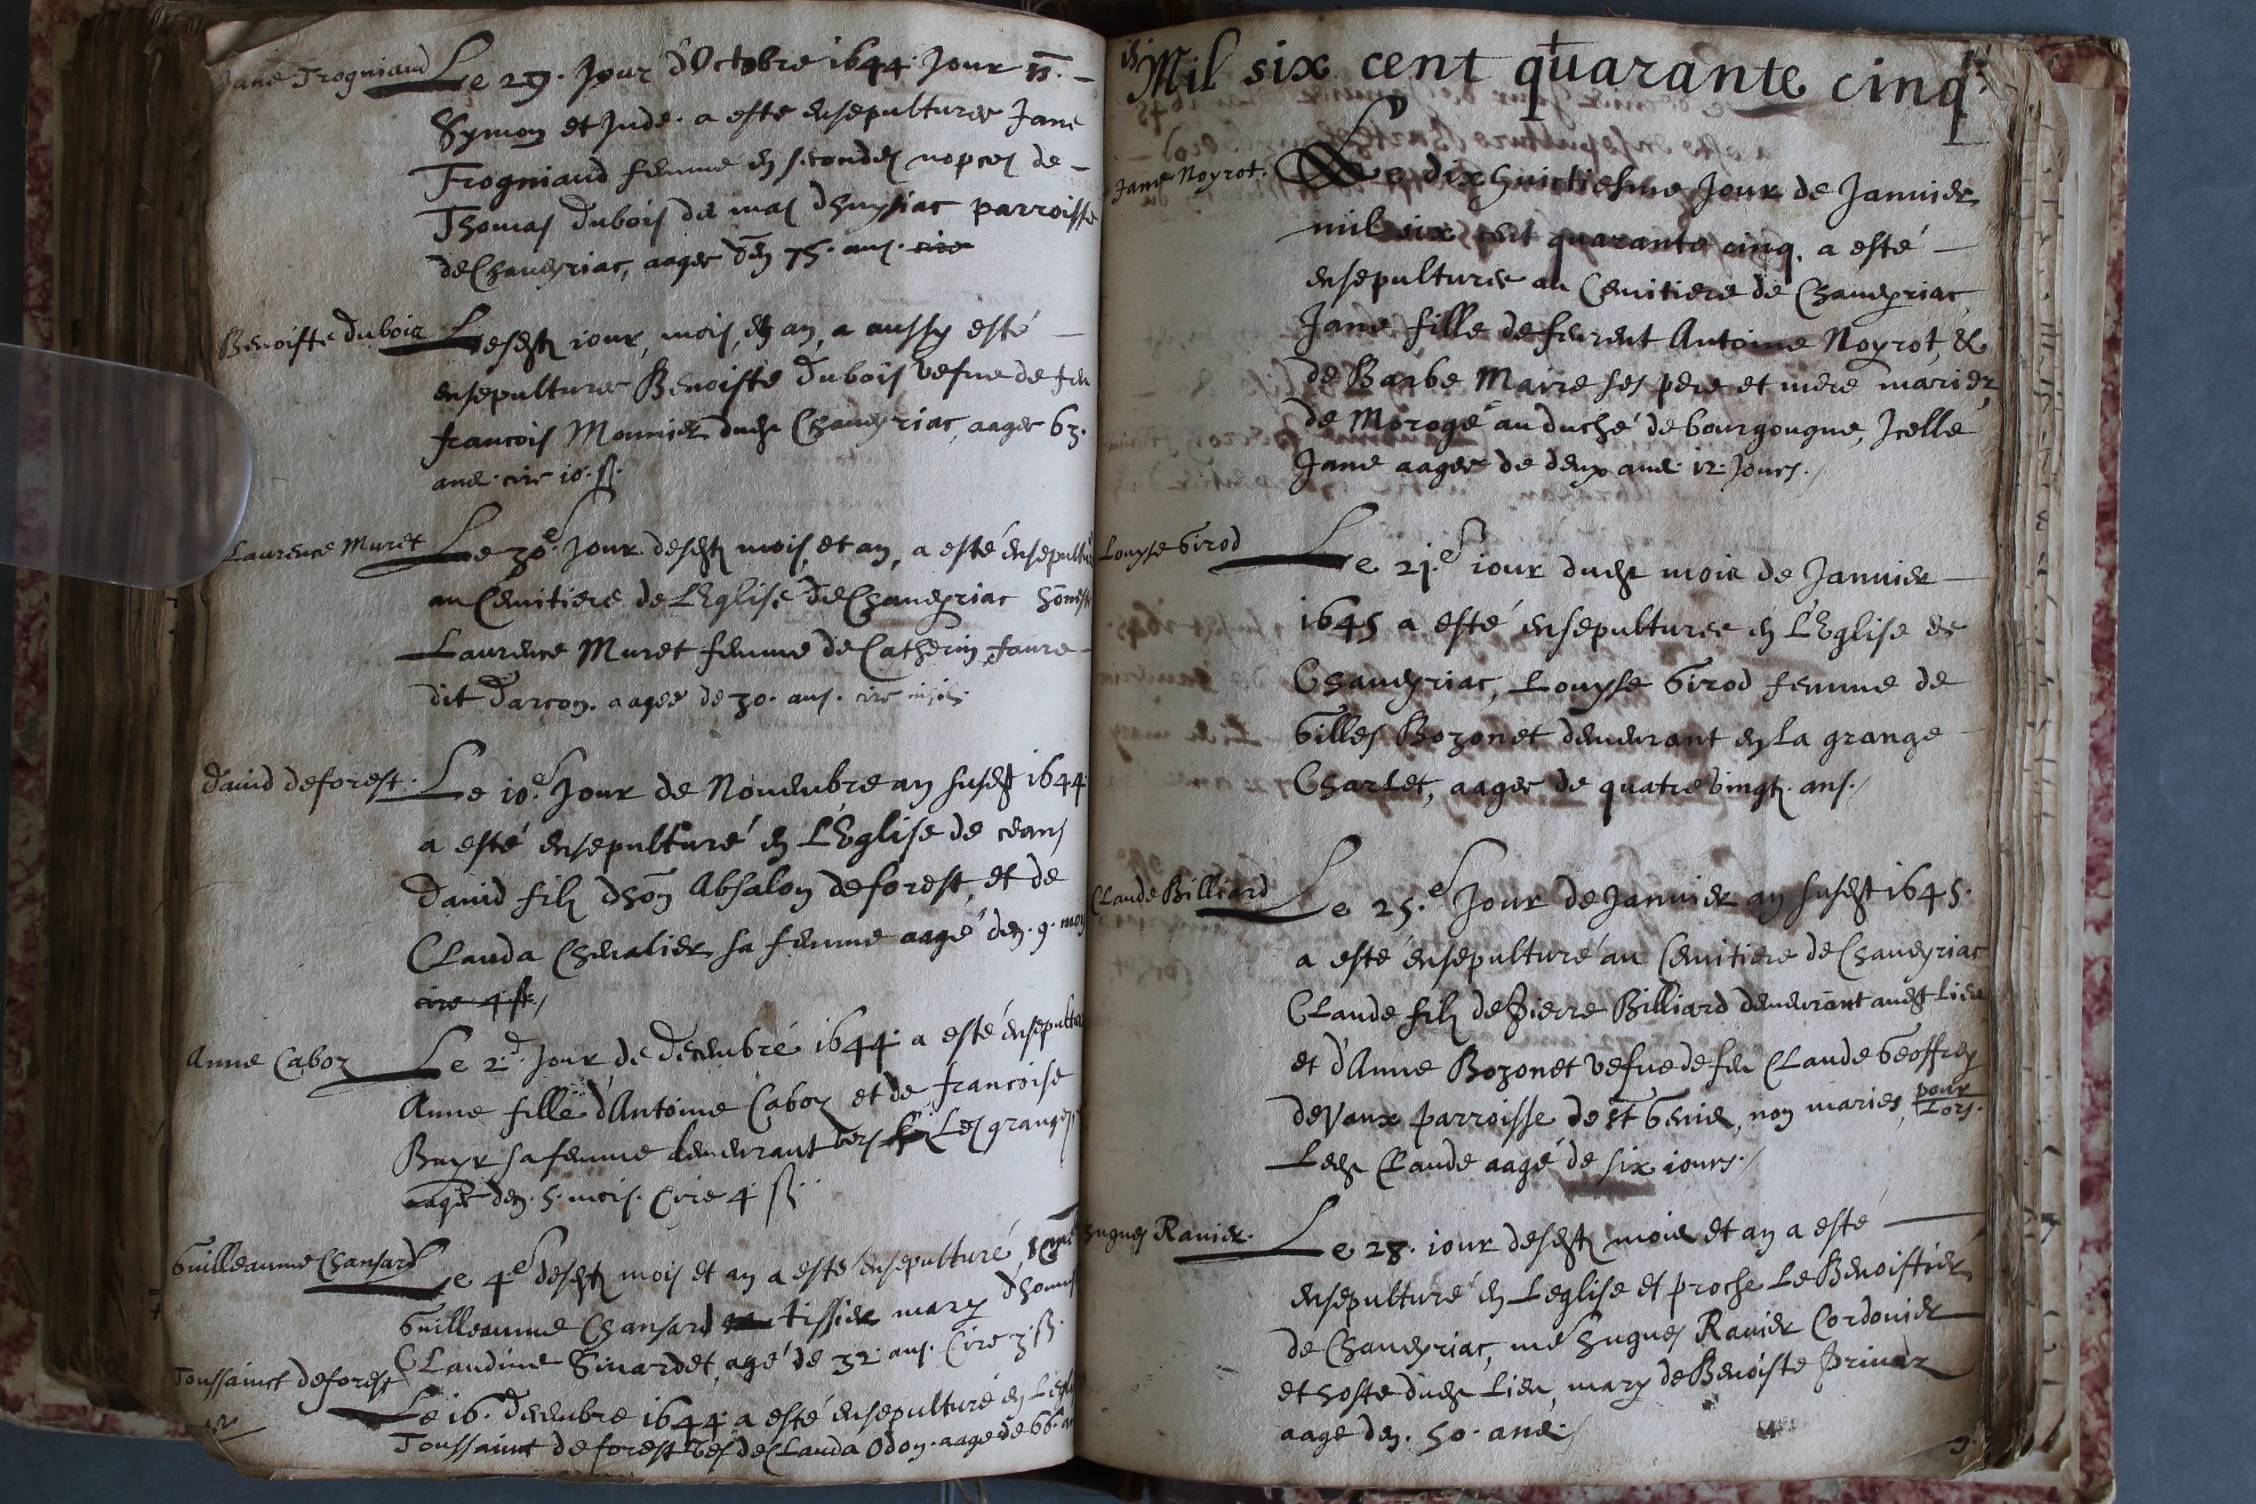 Jane Trogniaud
Le 29. Jour d'Octobre 1644 Jour
Symon et Jude. a este ensepulturee Jane
Trogniaud femme en secondes nopces de
Thomas Dubois de mas parroisse
de Chaveyriac, aagee d'en 75. ans. cire
Benoiste Dubois
Lesdt jour, mois, et an, a aussy esté
ensepulturee Benoiste Dubois vefue de feu
francois Monnier dudt Chaveyriac, aagee 63.
ans. cire 10. ß.
Laurence Muret
Le 30e. Jour desdt mois, et an, a esté ensepultu
au Cemitiere de L'Eglise de Chaveyriac honeste
Laurence Muret femme de Catherin faure
dit Darcon. aagee de 30. ans. cire
David deforest.
Le 10e. Jour de Novembre an susdt 1644
a esté ensepulturé en L'Eglise de ceans
David filz d'hon Absalon deforest, et de
Clauda Chevalier sa femme aagé d'en. 9. moys
cire 4 ß.
Anne Caboz
Le 2.d Jour de decembre 1644 a esté ensepultu
Anne fille d'Antoine Caboz et de francoise
Buyr sa femme demeurant vers Les granges
aagee d'en. 5. mois. Cire 4 ß.
Guilleaume Chansard
Le 4e desdt mois et an a esté ensepulturé,
Guilleaume Chansard tissier mary d'honeste
Claudine Sivardet, agé de 32. ans. Cire 3 ß.
Toussainct deforest
Le 16. Decembre 1644 a esté ensepulturé en L'eglis
Toussainct deforest de Clauda Odon. aagé de 66. an
Mil six cent quarante cinq.
Jane Noyrot.
Le dixhuictiesme Jour de Janvier
mil six cent quarante cinq. a esté
ensepulturee au Cemitiere de Chaveyriac
Jane fille de feurent Antoine Noyrot, &
de Barbe Maire ses pere et mere mariez
de Morogé au duché de bourgougne, Icelle
Jane aagee de deux ans. 12. Jours.
Louyse Girod
Le 21.e jour dudt mois de Janvier
1645 a esté ensepulturee en L'Eglise de
Chaveyriac, Louyse Girod femme de
Gilles Bozonet demeurant en La grange
Charlet, aagee de quatre vingtz. ans.
Claude Billiard
Le 25.e Jour de Janvier an susdt 1645.
a esté ensepulturé au Cemitiere de Chaveyriac
Claude filz de Pierre Billiard demeurant audt Lieu
et d'Anne Bozonet vefue de feu Claude Geoffrey
de Vaux parroisse de st Genis, non mariez, pour
Lors.
Ledt Claude aagé de six jours.
Hugues Ravier.
Le 28. jour desdt mois et an a esté
ensepulturé en Leglise et proche Le Benoistier
de Chaveyriac, me Hugues Ravier Cordonier
et hoste dudt Lieu, mary de Benoiste Privaz
aagé d'en. 50. ans.